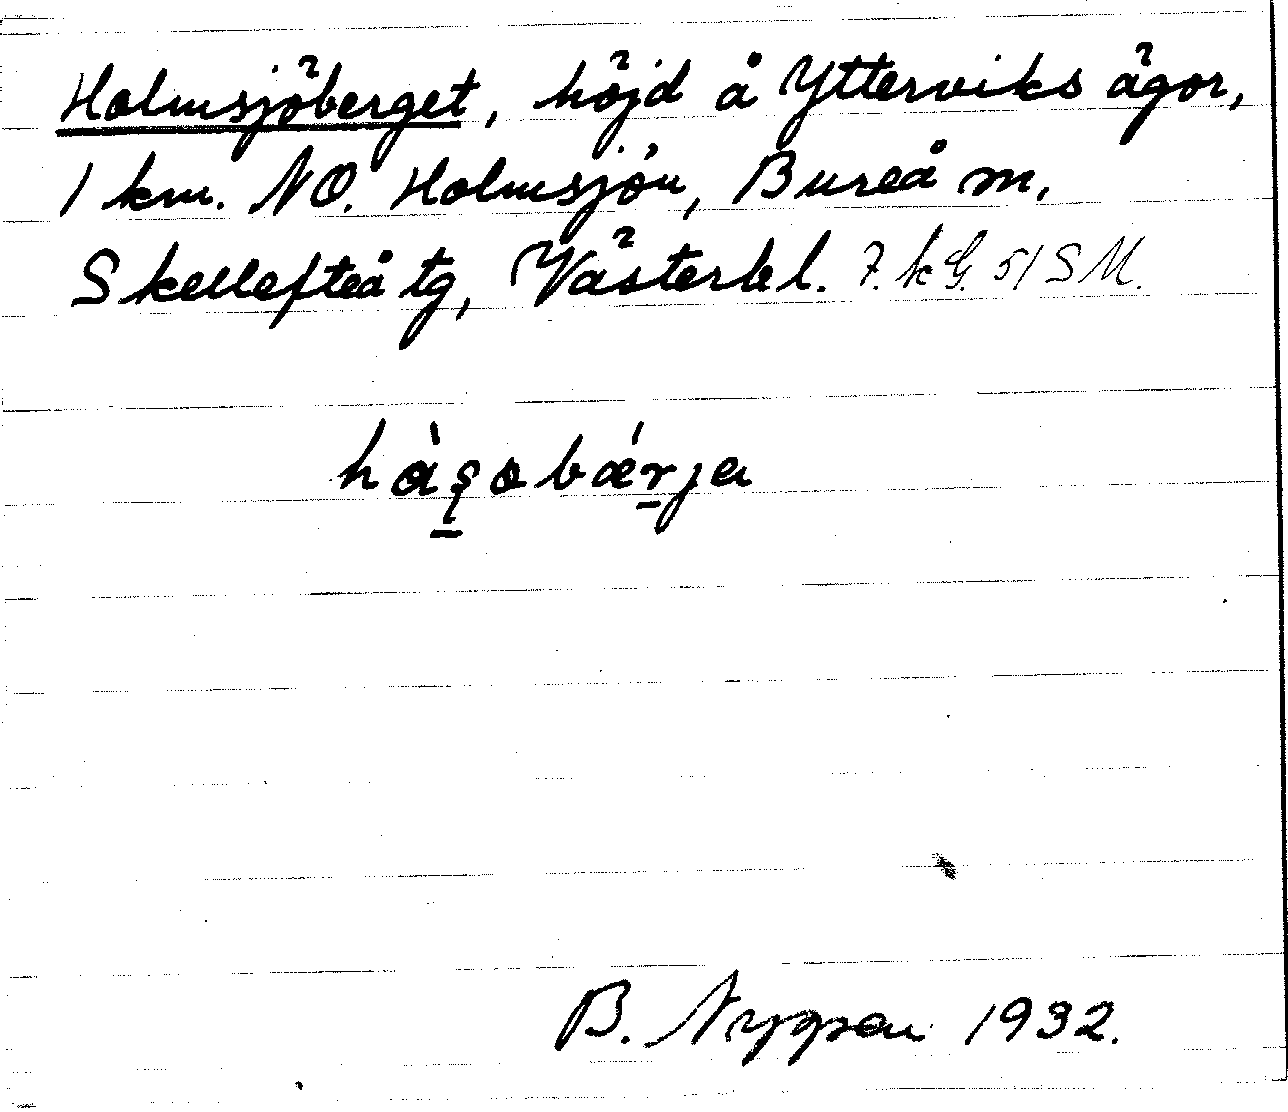 Holmsjöberget, höjd å Ytterviks ägor,
1 km. NO. Holmsjön, Bureå m,
Skellefteå tg, Västerb l. 7. kG. 51 SM.
B. Nygren 1932.